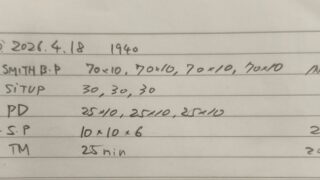 2026.4.18 1940
SMITH B.P 70×10, 70×10, 70×10, 70×10
SITUP 30, 30, 30
PD 25×10, 25×10, 25×10
S.P 10×10×6
TM 25min